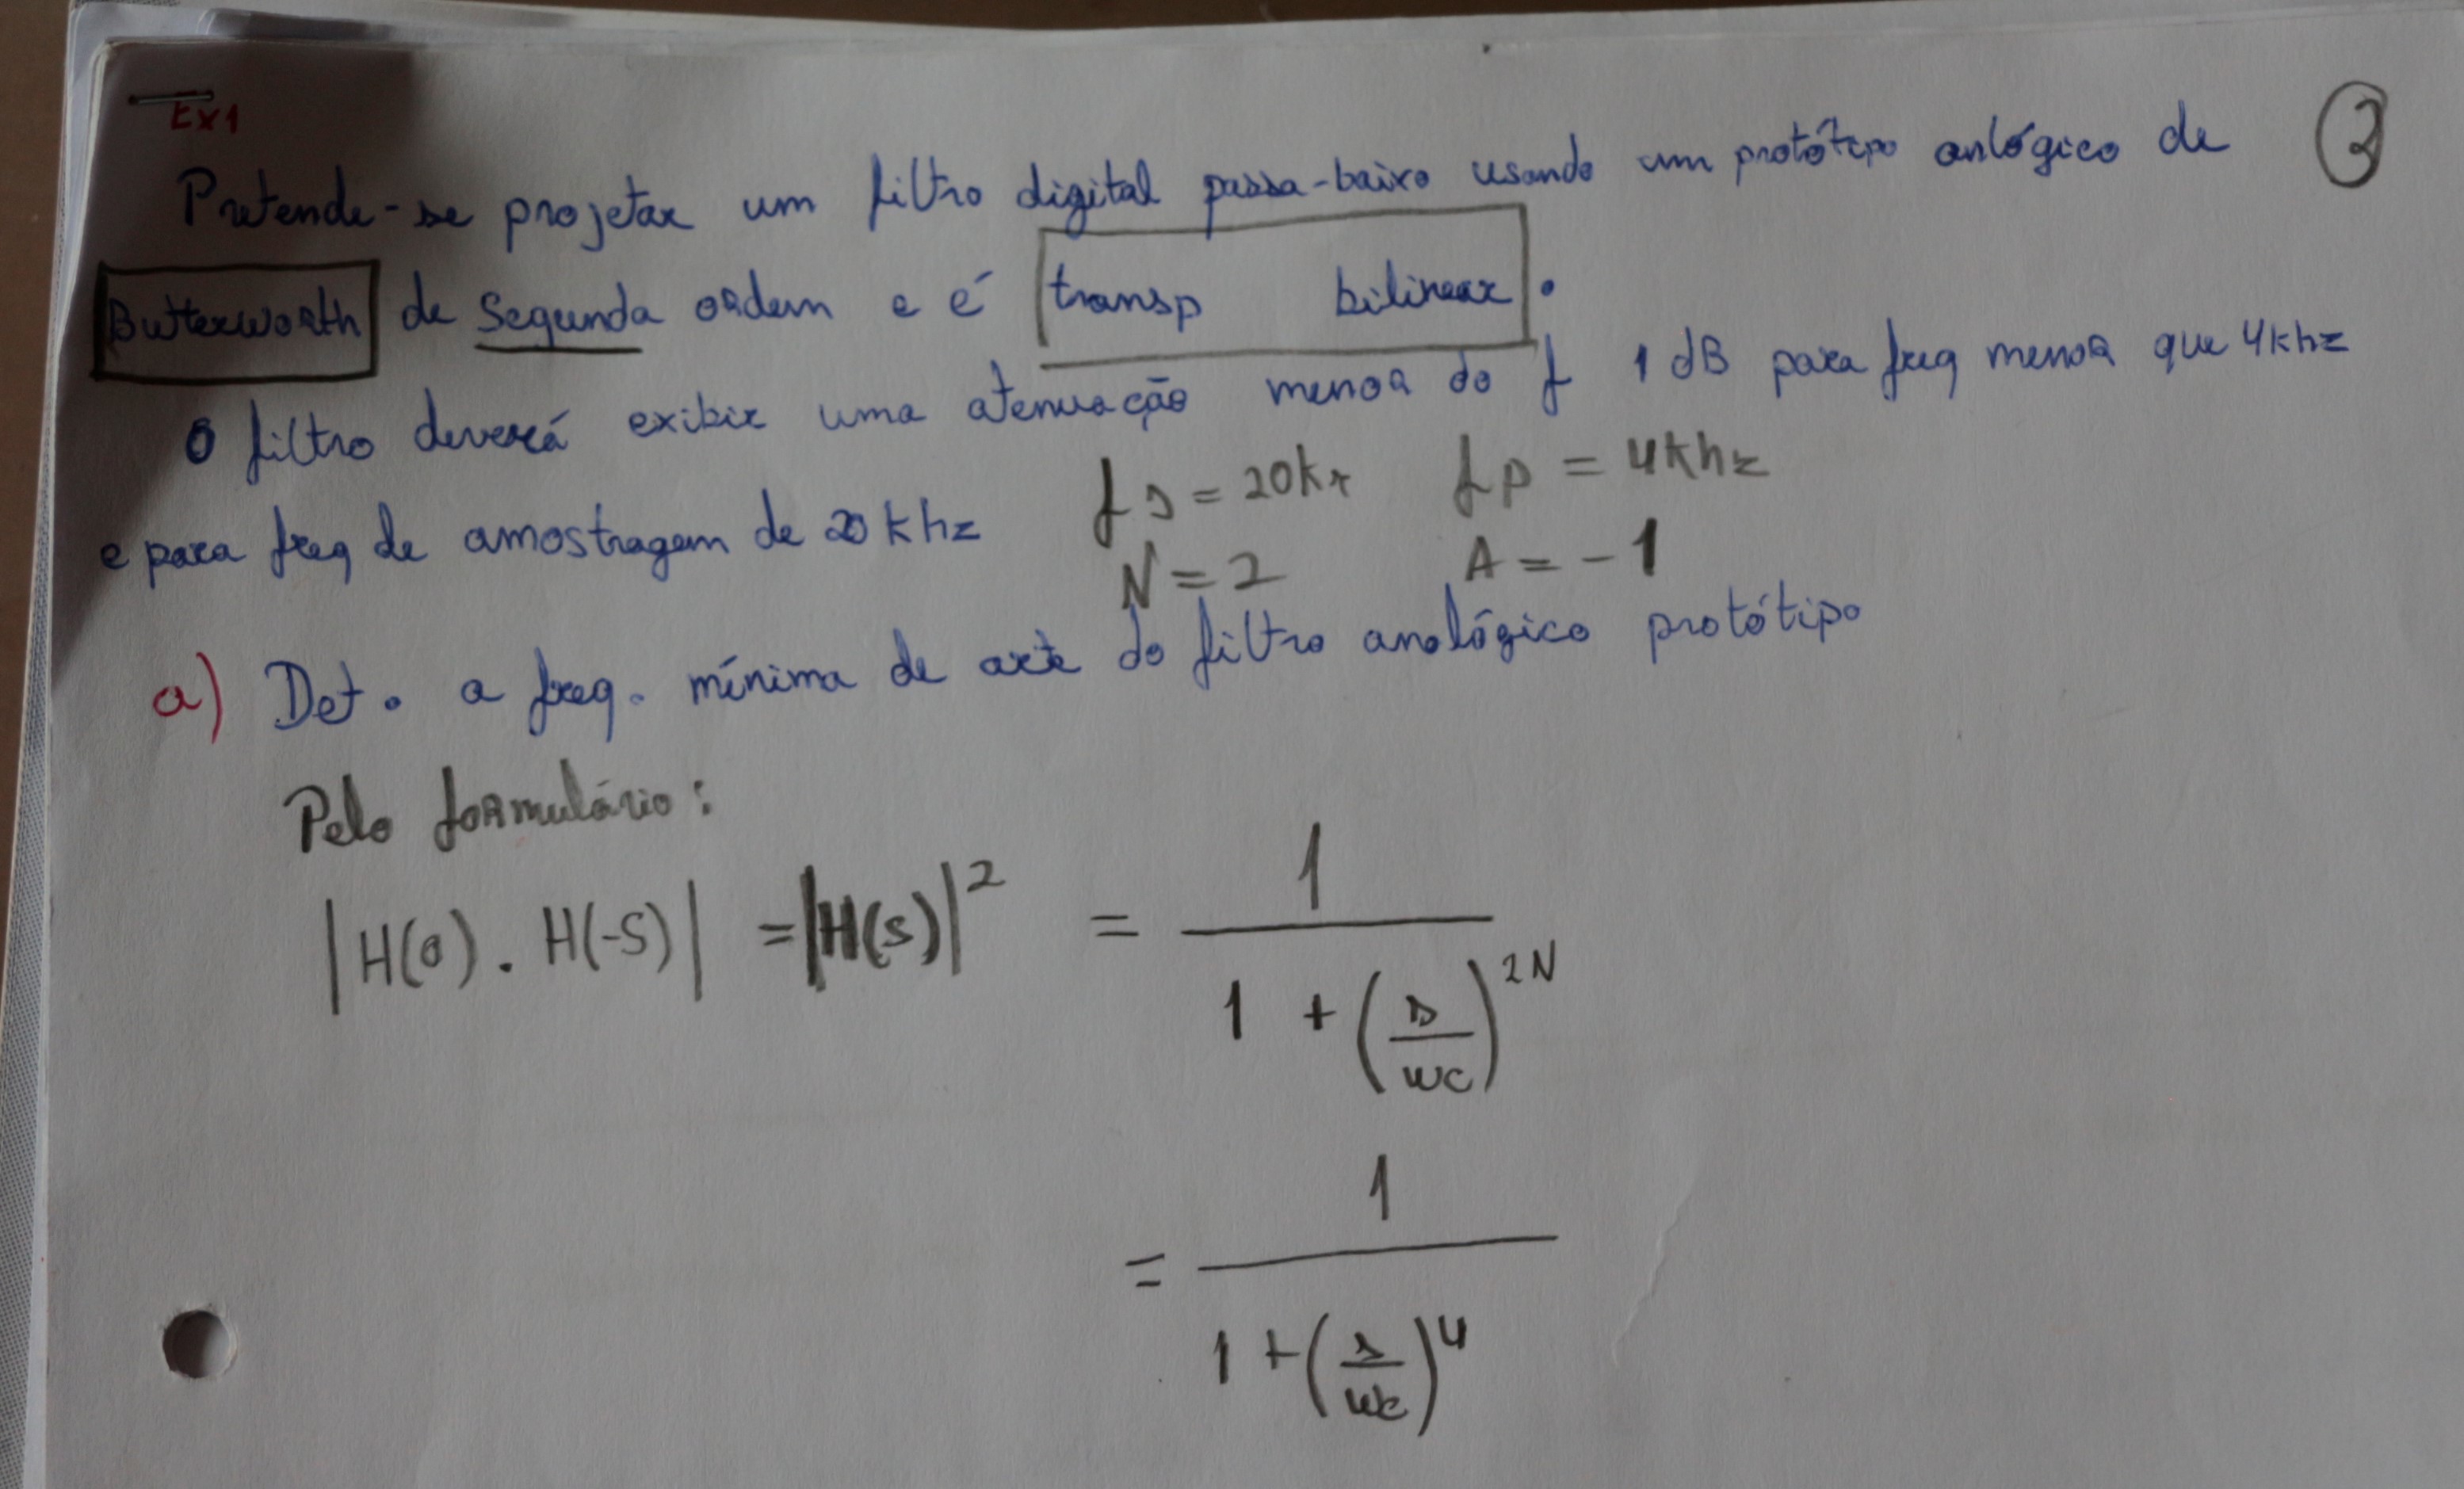 Ex1
Pretende-se projetar um filtro digital passa-baixo usando um protótipo anlógico de ③
Butterworth de Segunda ordem e é transp bilinear.
O filtro deverá exibir uma atenuação menor do f 1 dB para freq menor que 4khz
e para freq de amostragem de 20 khz
fs = 20kz fp = 4khz
N = 2 A = -1
a) Det. a freq. mínima de corte do filtro analógico protótipo
Pelo formulário:
|H(s) . H(-S)| = |H(s)|² = 1 / (1 + (s/wc)^2N)
= 1 / (1 + (s/wc)^4)